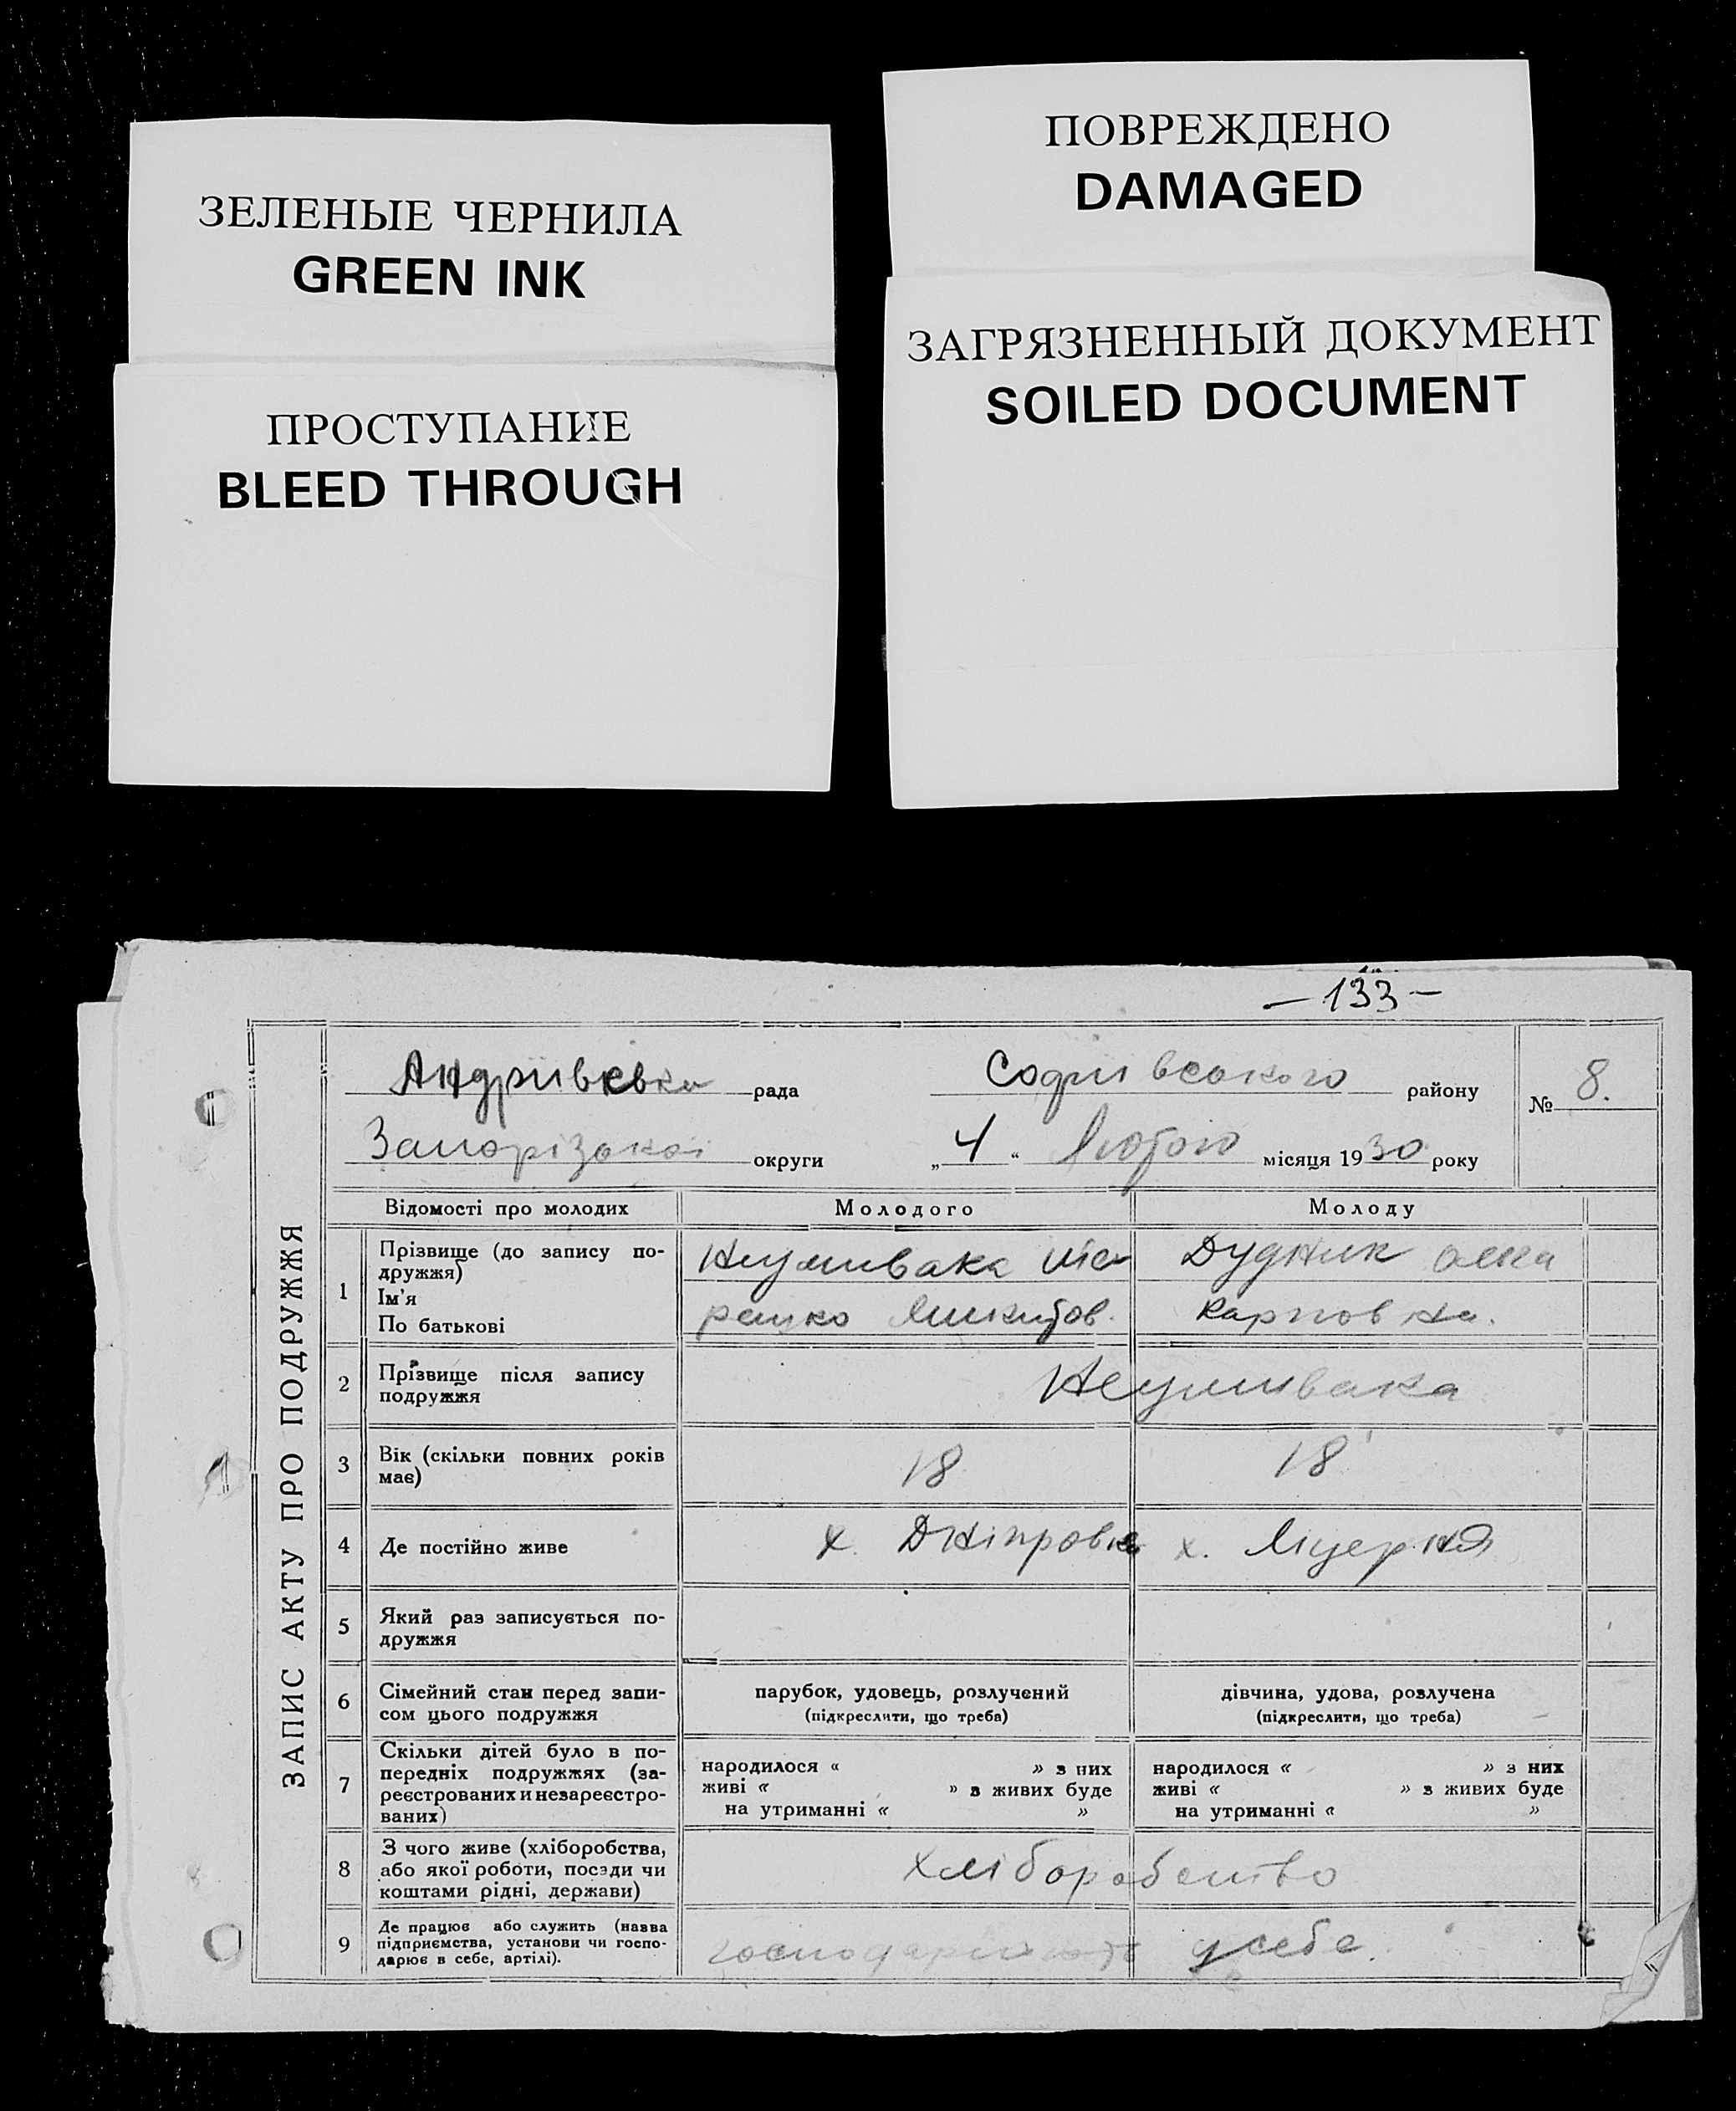 ПОВРЕЖДЕНО
DAMAGED
ЗЕЛЕНЫЕ ЧЕРНИЛА
GREEN INK
ЗАГРЯЗНЕННЫЙ ДОКУМЕНТ
SOILED DOCUMENT
ПРОСТУПАНИЕ
BLEED THROUGH
— 133 —
ЗАПИС АКТУ ПРО ПОДРУЖЖЯ
рада Софиівського району № 8.
Запорізької округи „4“ Лютого місяця 1930 року
Відомості про молодих Молодого Молоду
1 Прізвище (до запису по-
дружжя)
Ім'я
По батькові
Неумивака Дудник
Карповна.
2 Прізвище після запису
подружжя
Неумивака
3 Вік (скільки повних років
має)
18 18
4 Де постійно живе х. Дніпровка х.
5 Який раз записується по-
дружжя
6 Сімейний стан перед запи-
сом цього подружжя
парубок, удовець, розлучений
(підкреслити, що треба)
дівчина, удова, розлучена
(підкреслити, що треба)
7 Скільки дітей було в по-
передніх подружжях (за-
реєстрованих и незареєстро-
ваних)
народилося « » з них
живі « » з живих буде
на утриманні « »
народилося « » з них
живі « » з живих буде
на утриманні « »
8 З чого живе (хліборобства,
або якої роботи, посади чи
коштами рідні, держави)
хліборобство
9 Де працює або служить (назва
підприємства, установи чи госпо-
дарює в себе, артілі).
у себе.